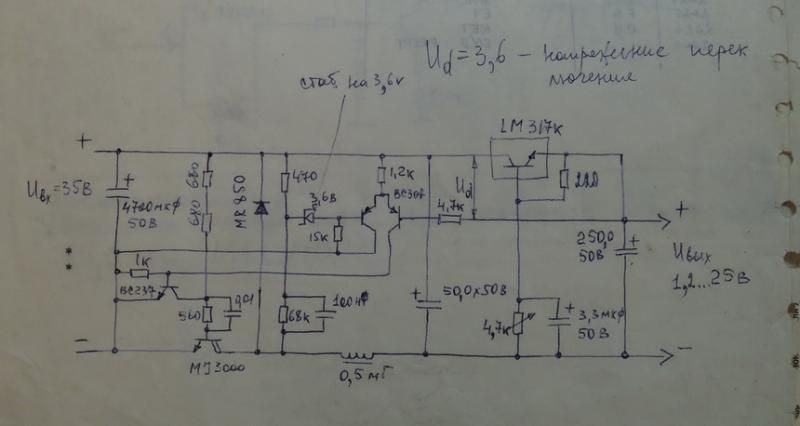 U_d = 3,6 – напряжение перек
лючения
стаб. на 3,6v
LM 317к
+
Uвх = 35В
4700мкф
50В
680
680
MR 850
470
3,6В
15к
1,2к
BC307
4,7к
U_d
220
+
250,0
50В
Uвых
1,2...25В
1к
BC237
560
0,01
68к
100нф
50,0x50В
4,7к
3,3мкф
50В
–
MJ3000
0,5мГ
–